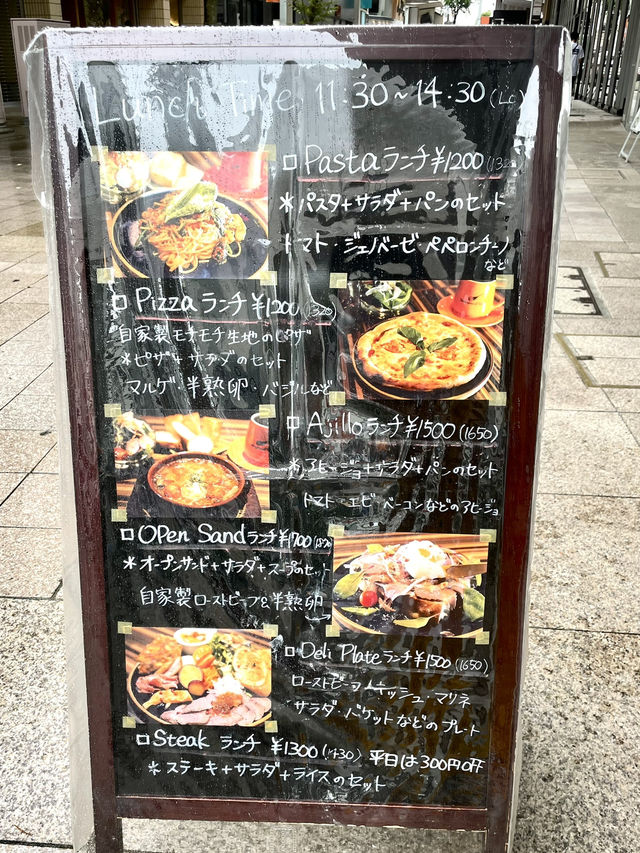 Lunch Time 11:30~14:30 (Lo)
□ Pastaランチ ¥1200 (1320)
＊パスタ+サラダ+パンのセット
トマト・ジェノバーゼ・ペペロンチーノ
など
□ Pizzaランチ ¥1200 (1320)
自家製モチモチ生地のピザ
＊ピザ+サラダのセット
マルゲ・半熟卵・バジルなど
□ Ajilloランチ ¥1500 (1650)
＊アヒージョ+サラダ+パンのセット
トマト・エビ・ベーコンなどのアヒージョ
□ Open Sandランチ ¥1700 (1870)
＊オープンサンド+サラダ+スープのセット
自家製ローストビーフ&半熟卵
□ Deli Plateランチ ¥1500 (1650)
ローストビーフ・キッシュ・マリネ
サラダ・バケットなどのプレート
□ Steak ランチ ¥1300 (1430) 平日は300円OFF
＊ステーキ+サラダ+ライスのセット